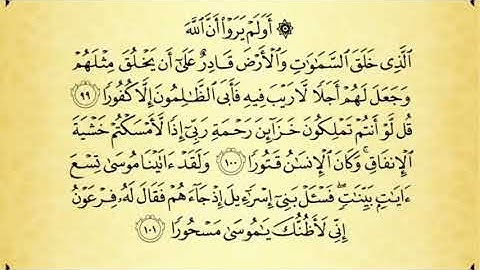 ۞ أَوَلَمْ يَرَوْا۟ أَنَّ ٱللَّهَ
ٱلَّذِى خَلَقَ ٱلسَّمَٰوَٰتِ وَٱلْأَرْضَ قَادِرٌ عَلَىٰٓ أَن يَخْلُقَ مِثْلَهُمْ
وَجَعَلَ لَهُمْ أَجَلًا لَّا رَيْبَ فِيهِ فَأَبَى ٱلظَّٰلِمُونَ إِلَّا كُفُورًا ٩٩
قُل لَّوْ أَنتُمْ تَمْلِكُونَ خَزَآئِنَ رَحْمَةِ رَبِّىٓ إِذًا لَّأَمْسَكْتُمْ خَشْيَةَ
ٱلْإِنفَاقِ ۚ وَكَانَ ٱلْإِنسَٰنُ قَتُورًا ١٠٠ وَلَقَدْ ءَاتَيْنَا مُوسَىٰ تِسْعَ
ءَايَٰتٍۭ بَيِّنَٰتٍ ۖ فَسْـَٔلْ بَنِىٓ إِسْرَٰٓءِيلَ إِذْ جَآءَهُمْ فَقَالَ لَهُۥ فِرْعَوْنُ
إِنِّى لَأَظُنُّكَ يَٰمُوسَىٰ مَسْحُورًا ١٠١